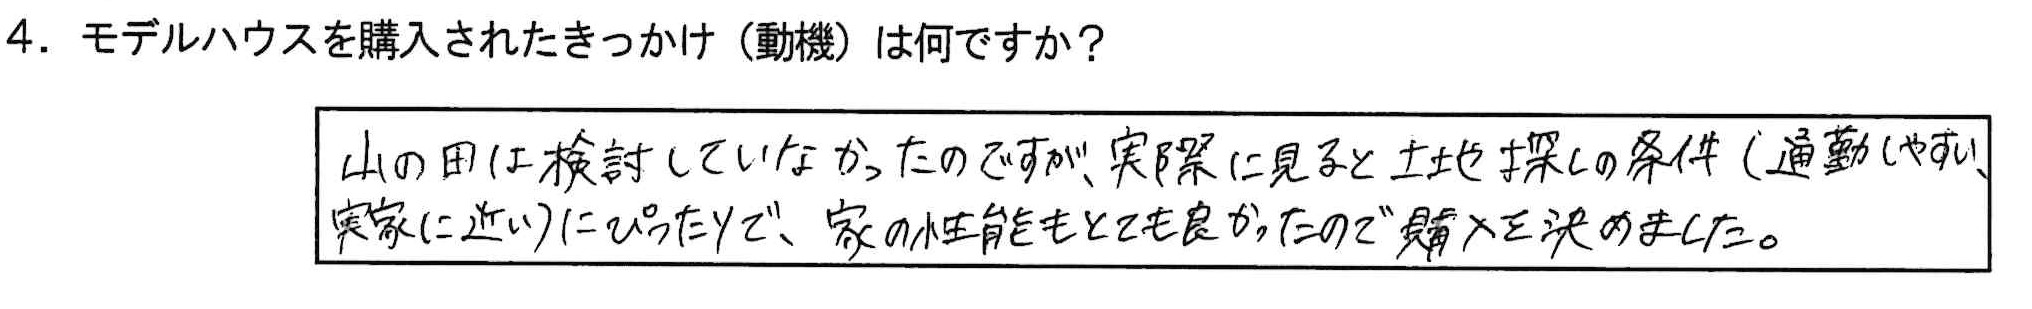 4．モデルハウスを購入されたきっかけ（動機）は何ですか？
山の田は検討していなかったのですが、実際に見ると土地探しの条件（通勤しやすい、
実家に近い）にぴったりで、家の性能もとても良かったので購入を決めました。